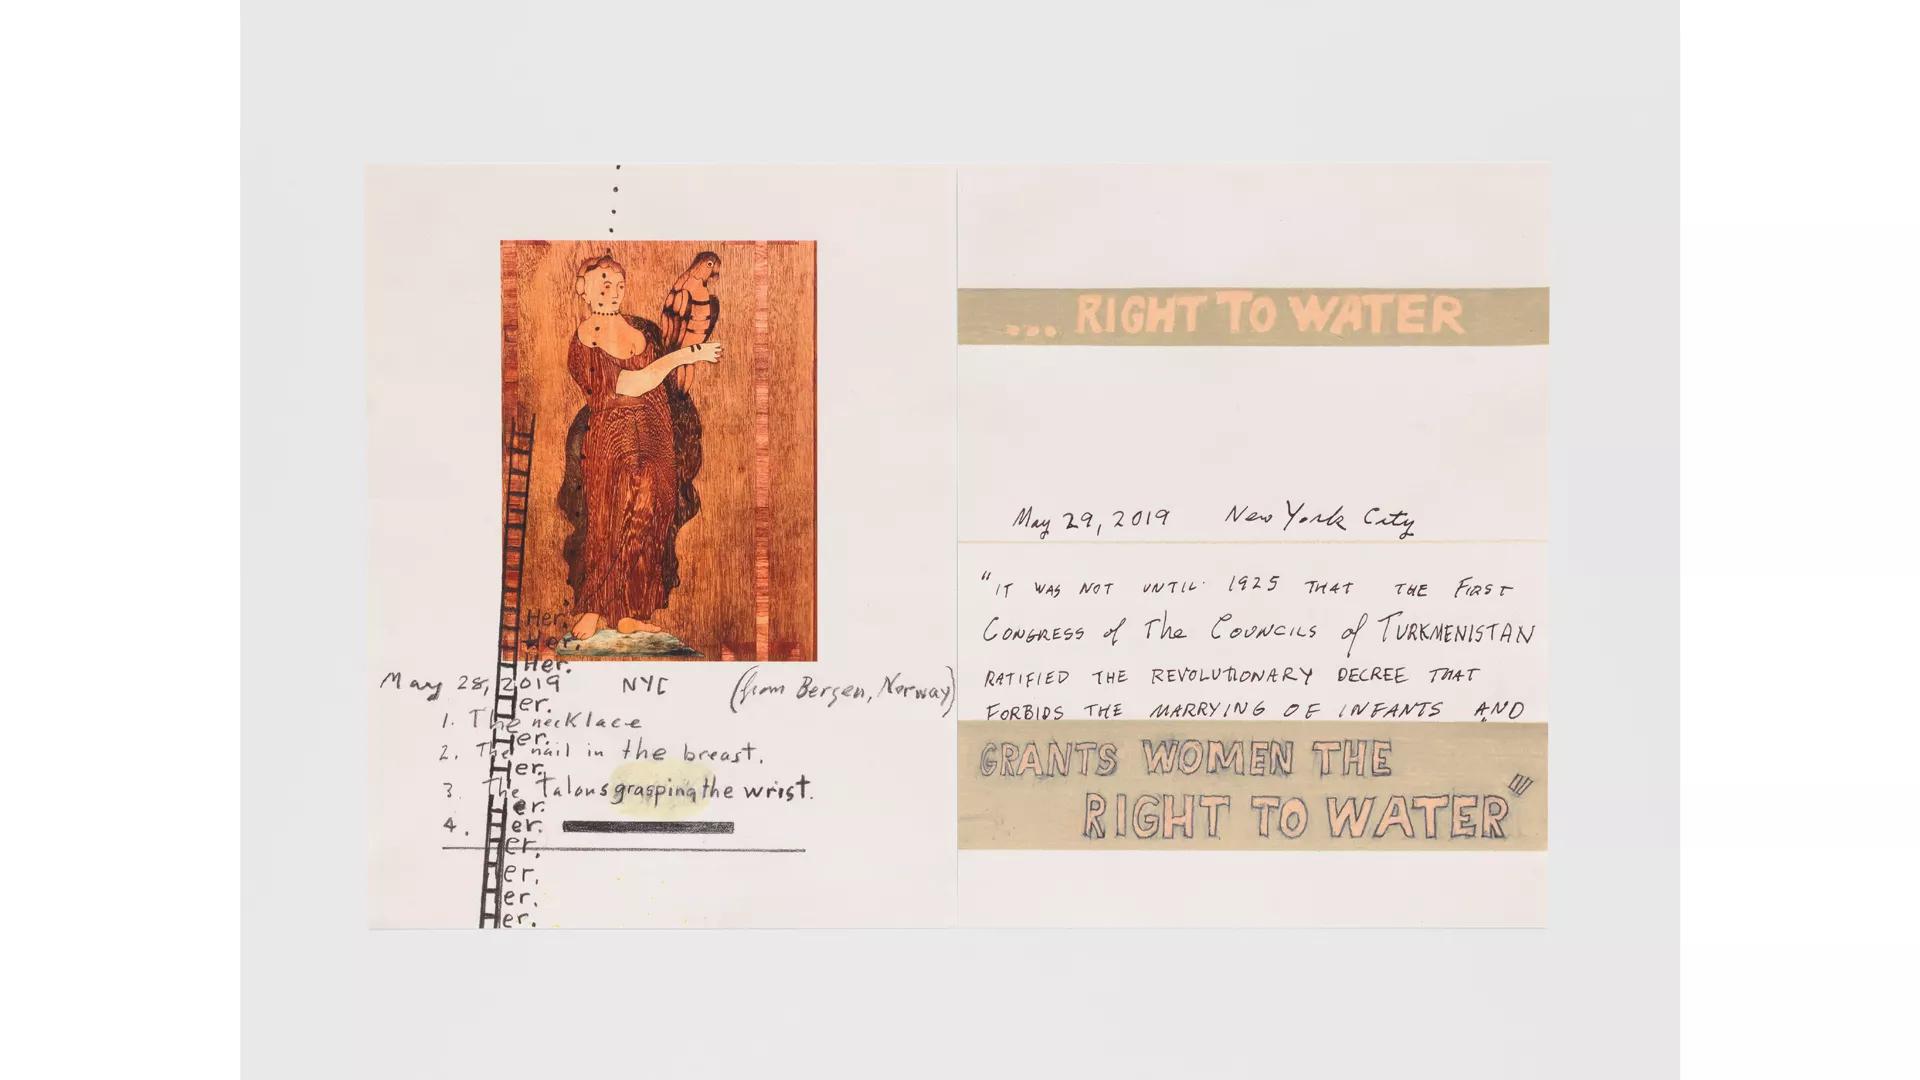 Her.
Her.
Her.
May 28, 2019 NYC (from Bergen, Norway)
er.
1. The necklace
er.
2. The nail in the breast.
er.
3. The Talons grasping the wrist.
er.
4. er.
er.
er.
er.
er.
... RIGHT TO WATER
May 29, 2019 New York City
"IT WAS NOT UNTIL 1925 THAT THE FIRST
CONGRESS of The COUNCILS of TURKMENISTAN
RATIFIED THE REVOLUTIONARY DECREE THAT
FORBIDS THE MARRYING OF INFANTS AND
GRANTS WOMEN THE
RIGHT TO WATER"